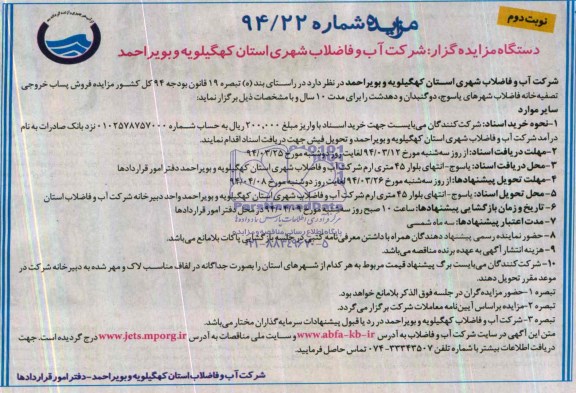 نوبت دوم
مزایده شماره ۹۴/۲۲
دستگاه مزایده گزار: شرکت آب و فاضلاب شهری استان کهگیلویه و بویراحمد
شرکت آب و فاضلاب شهری استان کهگیلویه و بویراحمد در نظر دارد در راستای بند (ه) تبصره ۱۹ قانون بودجه ۹۴ کل کشور مزایده فروش پساب خروجی
تصفیه خانه فاضلاب شهرهای یاسوج، دوگنبدان و دهدشت را برای مدت ۱۰ سال و با مشخصات ذیل برگزار نماید:
سایر موارد
۱-نحوه خرید اسناد: شرکت کنندگان می‌بایست جهت خرید اسناد با واریز مبلغ ۲۰۰,۰۰۰ ریال به حساب شماره ۰۱۰۲۵۷۸۷۵۷۰۰۰ نزد بانک صادرات به نام
درآمد شرکت آب و فاضلاب شهری استان کهگیلویه و بویراحمد و تحویل فیش جهت دریافت اسناد اقدام نمایند.
۲-مهلت دریافت اسناد: از روز سه‌شنبه مورخ ۹۴/۰۳/۱۲ لغایت روز مورخ ۹۴/۰۳/۲۵
۳-محل دریافت اسناد: یاسوج-انتهای بلوار ۴۵ متری ارم شرکت آب و فاضلاب شهری استان کهگیلویه و بویراحمد دفتر امور قراردادها
۴-مهلت تحویل پیشنهادها: از روز سه‌شنبه مورخ ۹۴/۰۳/۲۶ لغایت روز دوشنبه مورخ ۹۴/۰۴/۰۸
۵-محل تحویل اسناد: یاسوج-انتهای بلوار ۴۵ متری ارم شرکت آب و فاضلاب شهری استان کهگیلویه و بویراحمد واحد دبیرخانه شرکت آب و فاضلاب استان
۶-تاریخ و زمان بازگشایی پیشنهادها: ساعت ۱۰ صبح روز سه‌شنبه مورخ در محل دفتر امور قراردادها
۷-مدت اعتبار پیشنهادها: سه ماه شمسی
۸-حضور نماینده رسمی پیشنهاد دهندگان همراه با داشتن معرفی نامه کتبی در جلسه بازگشایی پاکات بلامانع می‌باشد.
۹-هزینه انتشار آگهی به عهده برنده مناقصه می‌باشد.
۱۰-شرکت کنندگان می‌بایست برگ پیشنهاد قیمت مربوط به هر کدام از شهرهای استان را بصورت جداگانه در لفاف مناسب لاک و مهر شده به دبیرخانه شرکت در
موعد مقرر تحویل دهند.
تبصره ۱-حضور مزایده گران در جلسه فوق الذکر بلامانع خواهد بود.
تبصره ۲-مزایده براساس آیین نامه معاملات شرکت برگزار می‌گردد.
تبصره ۳-شرکت آب و فاضلاب کهگیلویه و بویراحمد در رد یا قبول پیشنهادات سرمایه گذاران مختار می‌باشد.
متن این آگهی در سایت شرکت آب و فاضلاب به آدرس www.abfa-kb-ir و سایت ملی مناقصات به آدرس www.jets.mporg.ir درج گردیده است. جهت
دریافت اطلاعات بیشتر با شماره تلفن ۰۷۴-۳۳۳۴۳۵۰۷ تماس حاصل فرمایید.
شرکت آب و فاضلاب استان کهگیلویه و بویراحمد-دفتر امور قراردادها